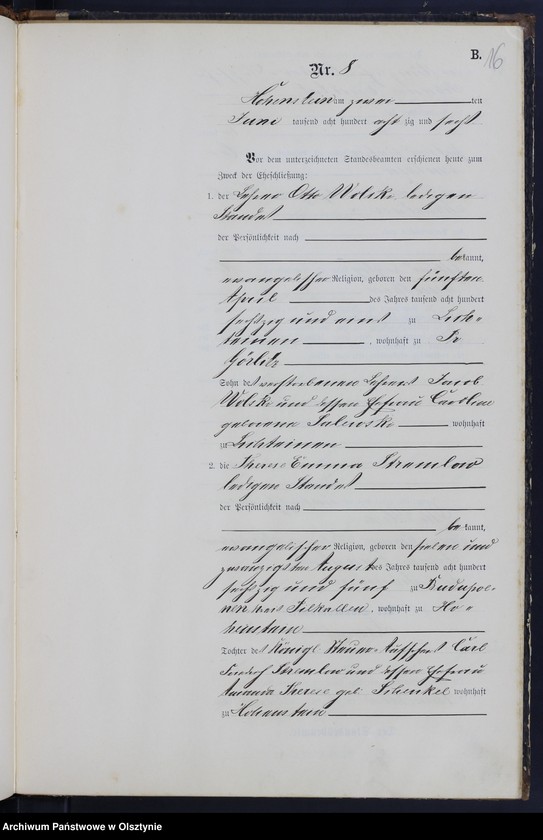 B.
16
Nr. 8
Hohenstein am zwei ten
Juni tausend acht hundert acht zig und sechs
Vor dem unterzeichneten Standesbeamten erschienen heute zum
Zweck der Eheschließung:
1. der Lehrer Otto Wolski ledigen
Standes
der Persönlichkeit nach
be kannt,
evangelischer Religion, geboren den fünften
April des Jahres tausend acht hundert
sechzig und eins zu
, wohnhaft zu Dr
Görlitz
Sohn des verstorbenen Lehrers Jacob
Wolski und dessen Ehefrau Caroline
geborene Salewski wohnhaft
zu
2. die Therese Emma Stramlow
ledigen Standes
der Persönlichkeit nach
be kannt,
evangelischer Religion, geboren den sieben und
zwanzigsten August des Jahres tausend acht hundert
sechzig und fünf zu
Kreis Pilkallen, wohnhaft zu Ho-
henstein
Tochter des Königl Aufsehers Carl
Stramlow und dessen Ehefrau
Amanda Therese geb Schenkel wohnhaft
zu Hohenstein
Archiwum Państwowe w Olsztynie